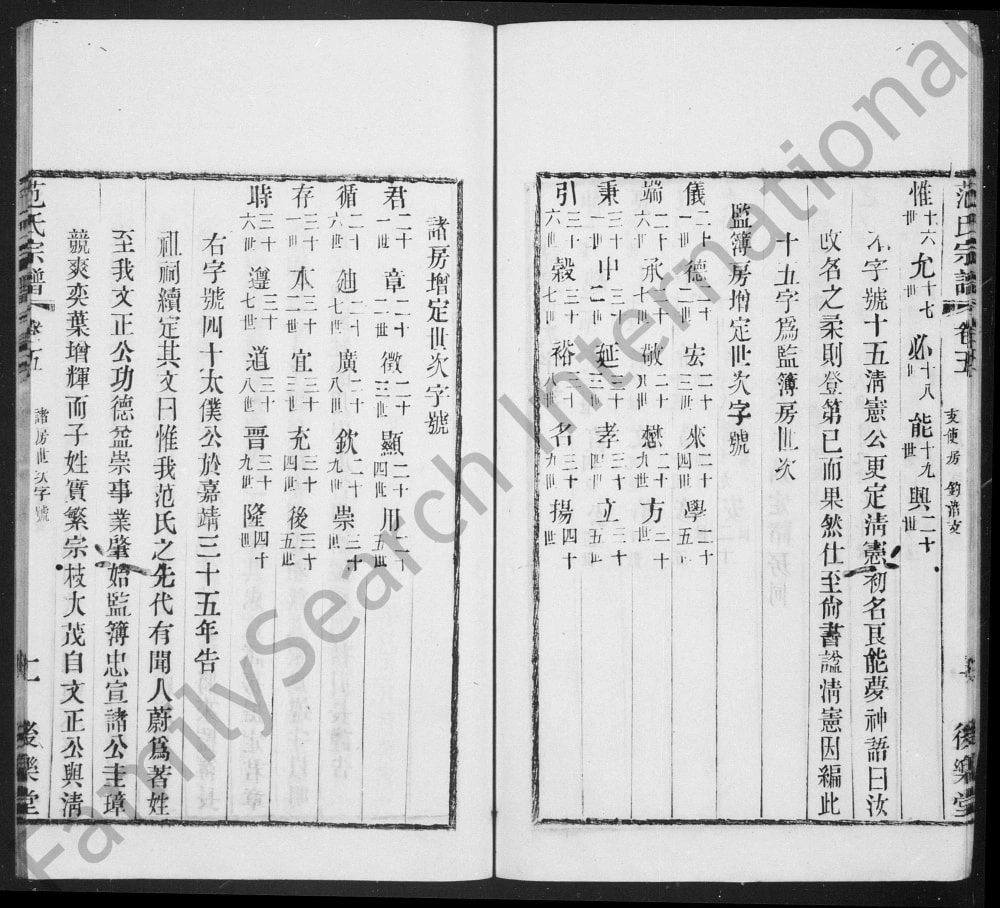 范氏宗譜 卷五 支使房 後樂堂
惟十六世 允十七世 必十八世 能十九世 興二十世
字號十五淸憲公更定淸憲初名良能夢神語曰汝
改名之柔則登第已而果然仕至尙書諡淸憲因編此
十五字爲監簿房世次
監簿房增定世次字號
儀二十一世 德二十二世 宏二十三世 來二十四世 學二十五世
端二十六世 承二十七世 敬二十八世 懋二十九世 方三十世
秉三十一世 中三十二世 延三十三世 孝三十四世 立三十五世
引三十六世 穀三十七世 裕三十八世 名三十九世 揚四十世
諸房增定世次字號
君二十一世 章二十二世 徵二十三世 顯二十四世 用二十五世
循二十六世 廸二十七世 廣二十八世 欽二十九世 崇三十世
存三十一世 本三十二世 宜三十三世 充四世三十 後三十五世
時三十六世 遵三十七世 道三十八世 晉三十九世 隆四十世
右字號四十太僕公於嘉靖三十五年告
祖祠續定其文曰惟我范氏之先代有聞人蔚爲著姓
至我文正公功德益崇事業肇始監簿忠宣諸公圭璋
競爽奕葉增輝而子姓實繁宗枝大茂自文正公與淸
范氏宗譜 卷五 諸房世次字號 七 後樂堂
FamilySearch International